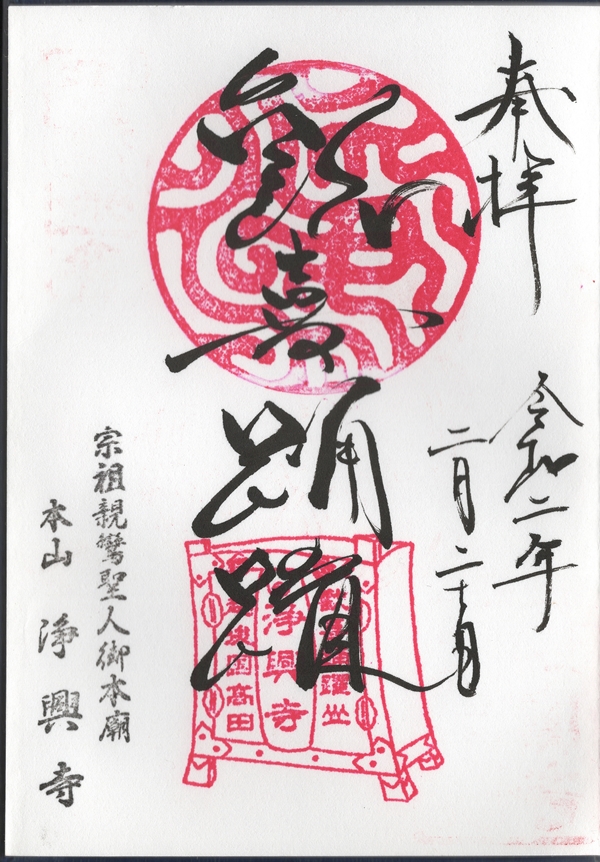 奉拝
令和二年
二月二十日
歓喜踊躍
浄興寺
国高田
宗祖親鸞聖人御本廟
本山 浄興寺